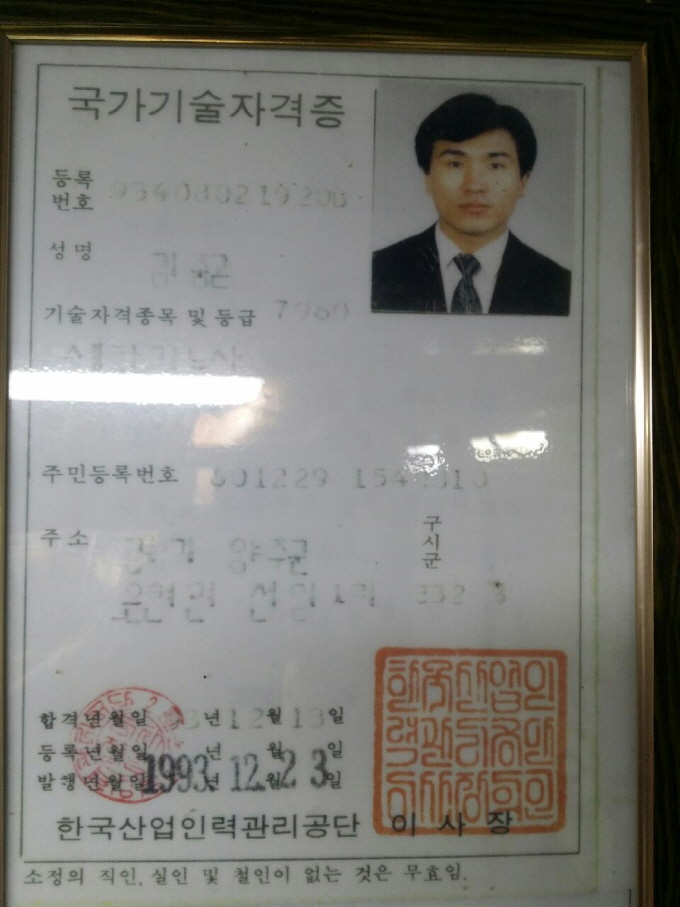 국가기술자격증
등록
번호 93408021920B
성명
기술자격종목 및 등급
세탁기능사
주민등록번호
주소 경기 양주군
구
시
군
은현면 선암1리 332
합격년월일 년 12월 13일
등록년월일 년 월 일
발행년월일 1993년 12.월 23일
한국산업인력관리공단 이사장
소정의 직인, 실인 및 철인이 없는 것은 무효임.